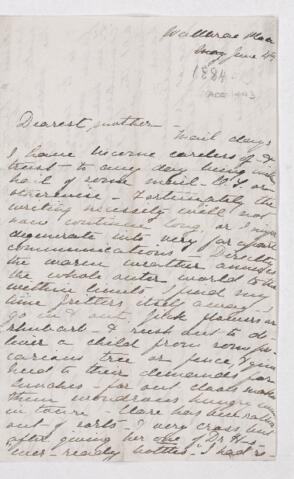 Wallerae Place
May June 4th
1884
Dearest mother —
Mail days
I have become careless of &
trust to any day being mail
day of some mail — or
otherwise — Fortunately the
writing miserly will not
now continue long, or I might
degenerate into very far apart
communications — Directly
the warm weather
the whole outer world to
within limits I find my
time fritters itself away — I
go in & out fetch flowers or
rhubarb — & rush out to de-
liver a child from some pre-
carious tree or fence, & give
heed to their demands for
lunches — for out doors makes
them wondrous hungry
in town — Clare has been rather
out of sorts & very cross but
after giving her one of Dr H—s
ever-ready bottles — I had